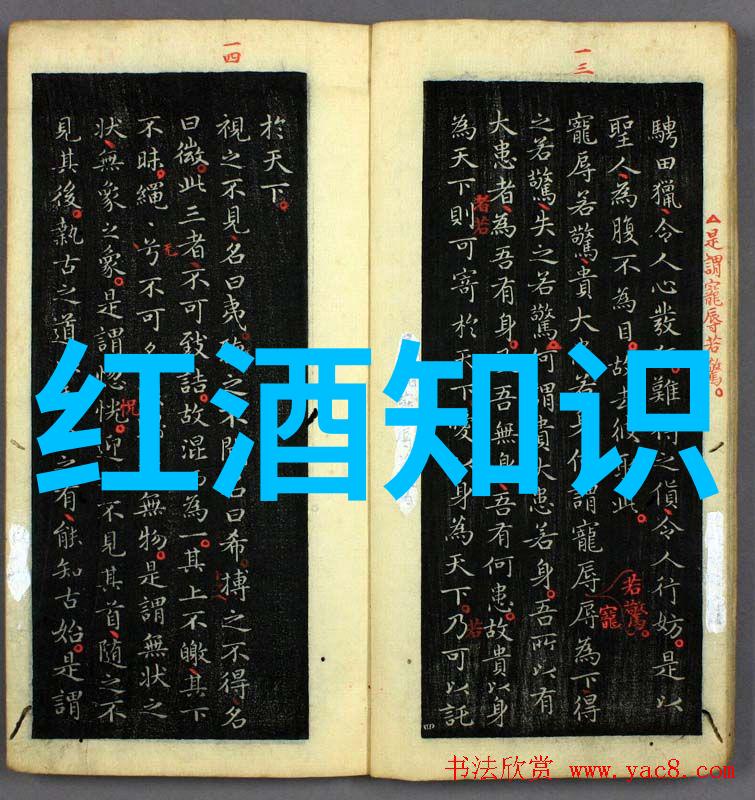 一三
是謂寵辱若驚。
騁田獵令人心發難之貨令人行妨。是以
聖人為腹不為目。故去彼此。
寵辱若驚貴大若何謂寵辱辱為下得
若驚。
寵
之若驚失之若驚可謂貴大患若身。吾所以有
大患者為吾有身。吾無身吾有何患。故貴以身
者若
為天下則可寄於天下身為天下。乃可以託
若
一四
於天下。
視之不見名曰夷。之不名曰希。搏之不得名
曰微。此三者不可致詰。故混為一。其上不皦其下
不昧。繩〻兮不可無物。是謂無状之
无
状無象之象。是謂惚恍。迎不見其首隨之不
怳
見其後。執古之道之有能知古始。是謂
红酒知识
书法欣赏 www.yac8.com